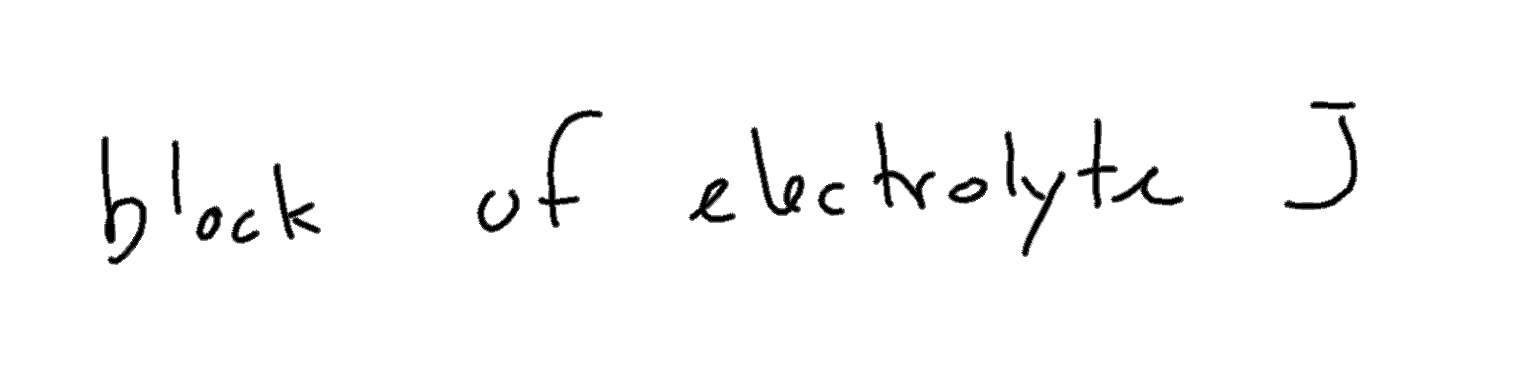 block of electrolyte J